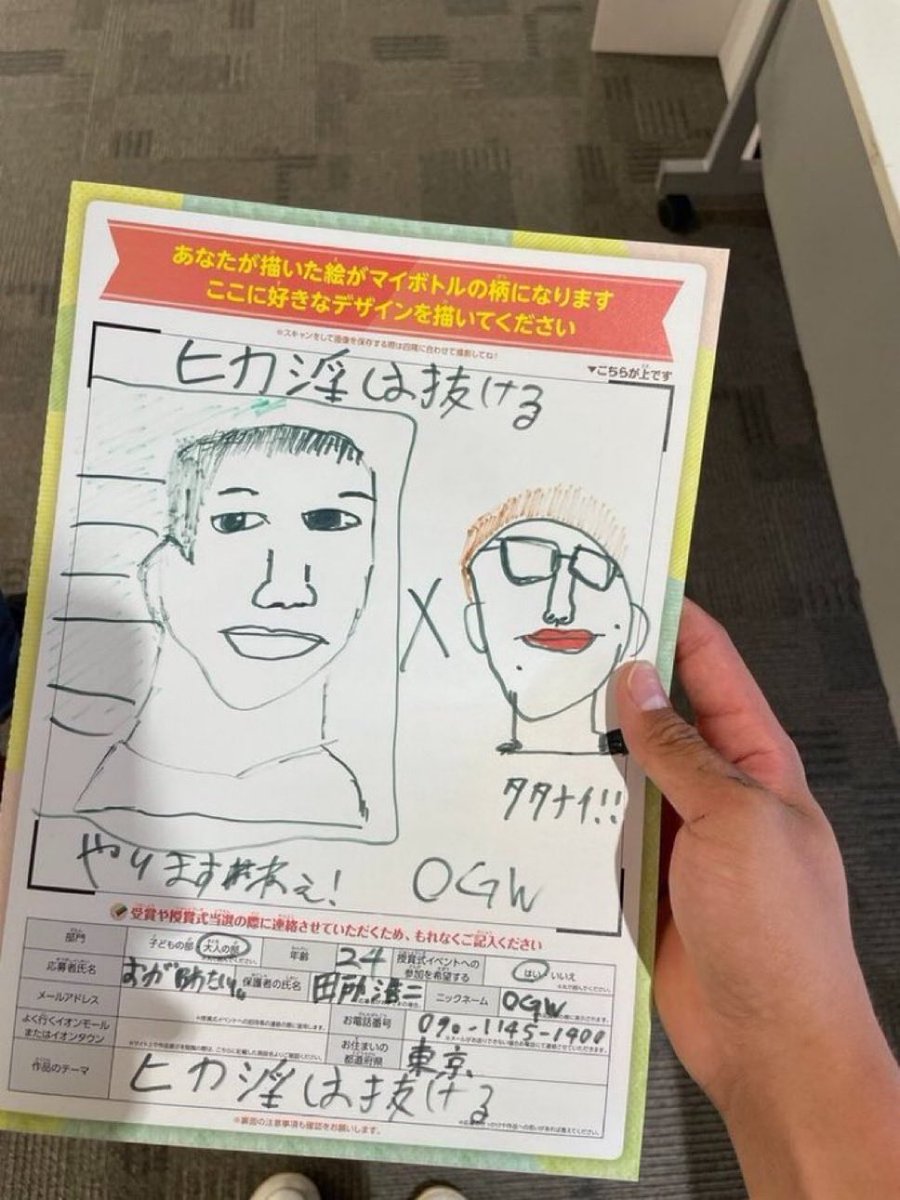 あなたが描いた絵がマイボトルの柄になります
ここに好きなデザインを描いてください
※スキャンをして画像を保存する際は四隅に合わせて撮影してね!
▼こちらが上です
ヒカ淫は抜ける
X
タタナイ!!
やります
OGW
受賞や授賞式当選の際に連絡させていただくため、もれなくご記入ください
部門 子どもの部・大人の部 年齢 24 授賞式イベントへの参加を希望する はい・いいえ
応募者氏名 保護者の氏名 田所浩二 ニックネーム OGW
メールアドレス お電話番号 090-1145-1400
よく行くイオンモールまたはイオンタウン お住まいの都道府県 東京
作品のテーマ ヒカ淫は抜ける
※裏面の注意事項も確認をお願いします。